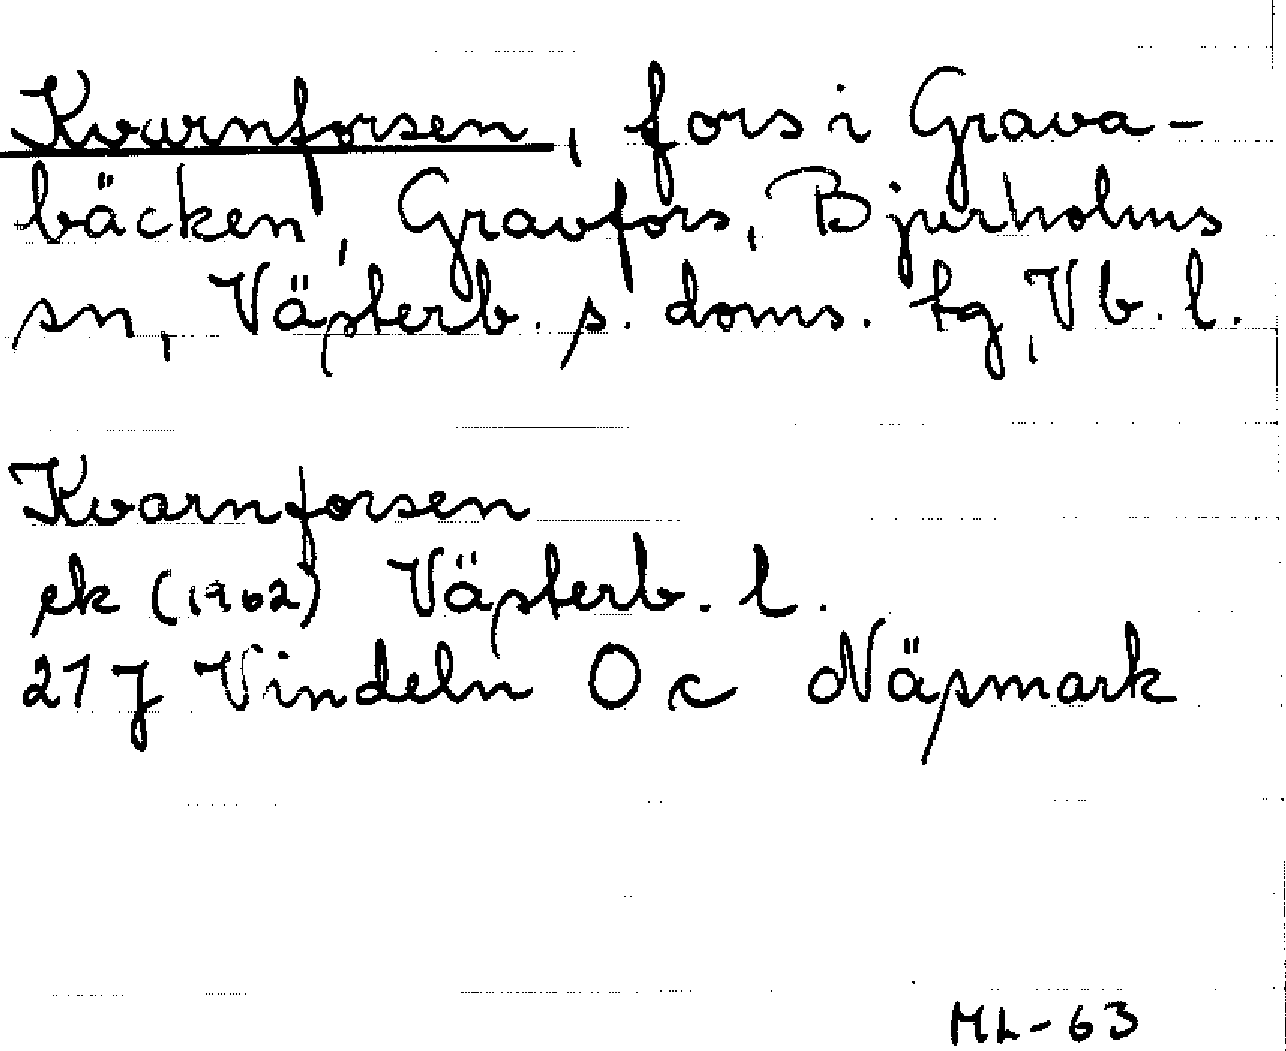 Kvarnforsen, fors i Grava-
bäcken, Gravfors, Bjurholms
sn, Västerb. s. doms. tg, Vb. l.
Kvarnforsen
ek (1962) Västerb. l.
21 J Vindeln 0 c Näsmark
ML-63